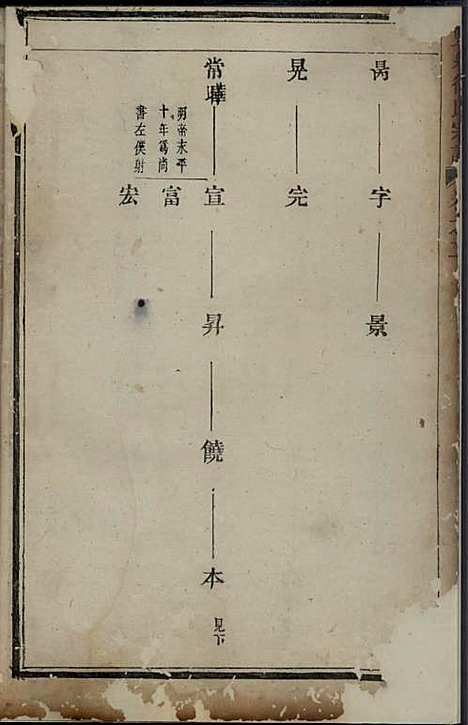 昺 字 景
晃 完
常 曄 宣 昇 饒 本 見下
明帝永平
十年為尚
書左僕射
富
宏